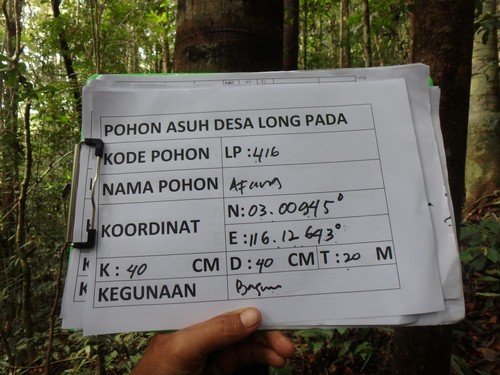 POHON ASUH DESA LONG PADA
KODE POHON LP : 416
NAMA POHON
KOORDINAT N: 03.00945°
E : 116.12643°
K : 40 CM D : 40 CM T : 20 M
KEGUNAAN